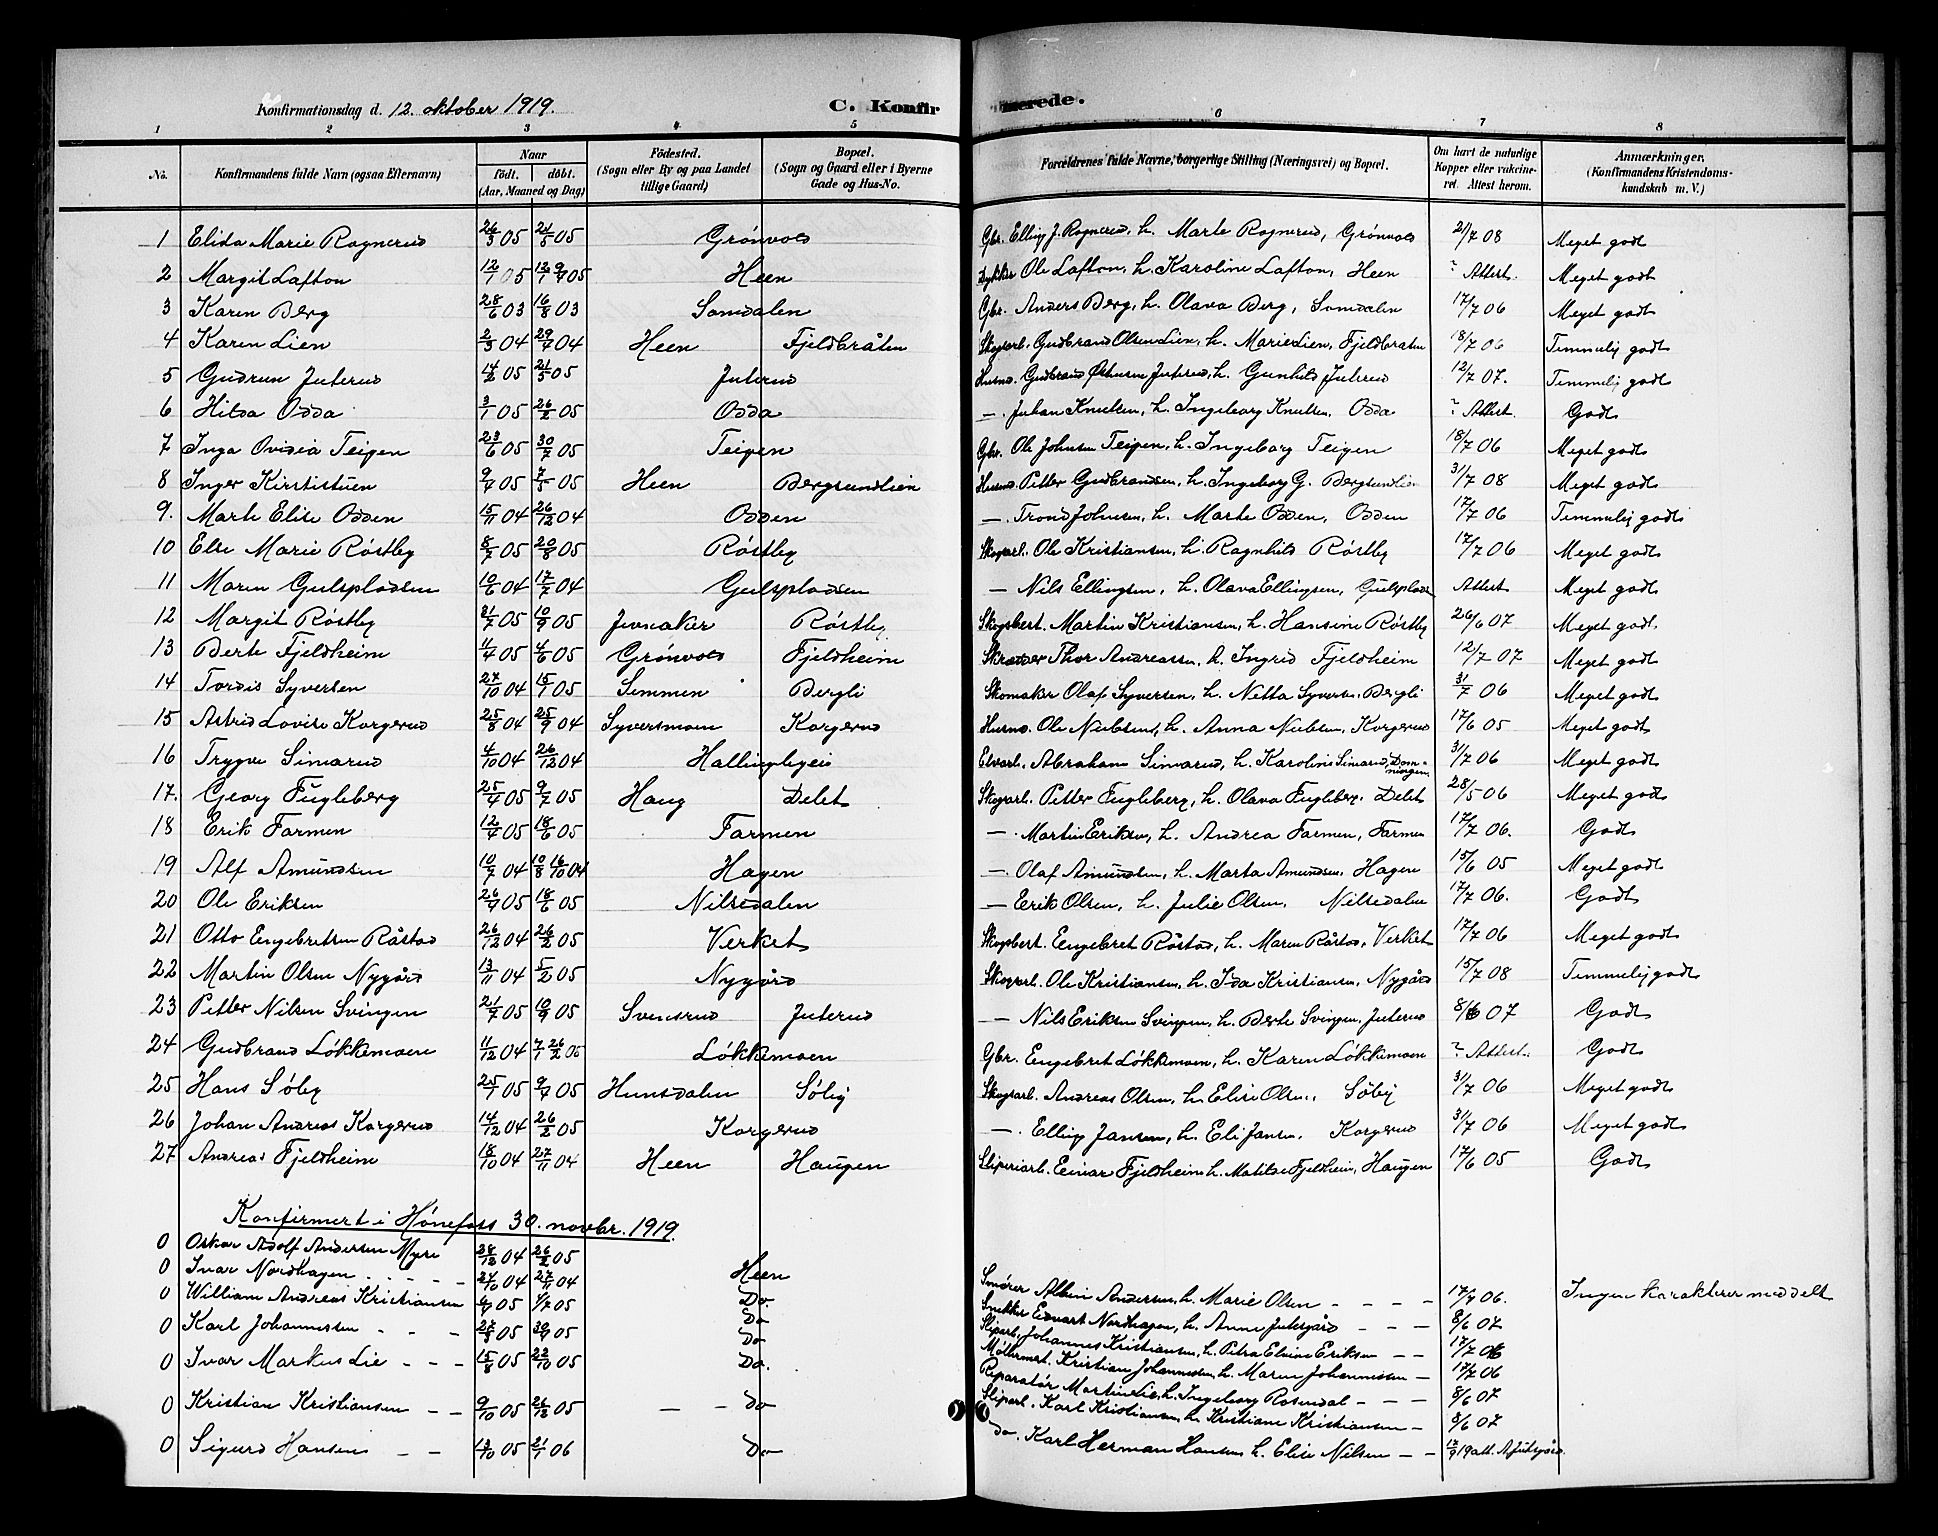 Konfirmationsdag d. 12. oktober 1919. C. Konfirmerede.
1 2 3 4 5 6 7 8
No. Konfirmandens fulde Navn (ogsaa Efternavn) Naar födt. döbt. (Aar, Maaned og Dag) Födested. (Sogn eller By og paa Landet tillige Gaard) Bopæl. (Sogn og Gaard eller i Byerne Gade og Hus-No. Forældrenes fulde Navne, borgerlige Stilling (Næringsvei) og Bopæl. Om havt de naturlige Kopper eller vakcineret. Attest herom. Anmærkninger. (Konfirmandens Kristendomskundskab m. V.)
1 Elida Marie Ragnerud 26/3 05 21/5 05 Grönvold Gbr. Elling J. Ragnerud, h. Marte Ragnerud, Grönvold 21/7 08 Meget godt
2 Margit Lafton 12/1 05 12/1 9/7 05 Heen Dykker Ole Lafton, h. Karoline Lafton, Heen ? Attest. Meget godt
3 Karen Berg 28/6 03 16/8 03 Somdalen Gbr. Anders Berg, h. Olava Berg, Somdalen 17/7 06 Meget godt
4 Karen Lien 2/3 04 29/7 04 Heen Fjeldbråten Skogsarb. Gudbrand Olsen Lien, h. Marie Lien, Fjeldbraten 18/7 06 Temmelig godt
5 Gudrun Juterud 14/2 05 21/5 05 Juterud Husmd. Gudbrand Juterud, h. Gunhild Juterud 12/7 07. Temmelig godt
6 Hilda Odda 3/1 05 26/2 05 Odda —. Johan Knutsen, h. Ingeborg Knutsen, Odda ? Attest. Godt
7 Inga Ovidia Teigen 23/6 05 30/7 05 Teigen Gbr. Ole Johnsen Teigen, h. Ingeborg Teigen 18/7 06 Meget godt
8 Inger Kirstistuen 9/4 05 7/5 05 Heen Bergsundlien Husmd. Petter Gudbrandsen, h. Ingeborg G. Bergsundlien 31/7 08 Meget godt
9. Marte Elise Odden 15/11 04 26/12 04 Odden —. Trond Johnsen, h. Marte Odden, Odden 17/7 06 Temmelig godt
10 Else Marie Röstby 8/7 05 20/8 05 Röstby Skogarb. Ole Kristiansen, h. Ragnhild Röstby 17/7 06 Meget godt
11 Maren Gulspladsen 10/6 04 17/7 04 Gulspladsen — Nils Ellingsen, h. Olava Ellingsen, Gulspladsen Attest Meget godt
12 Margit Röstby 31/7 05 10/9 05 Jevnaker Röstby Skogsbest. Martin Kristiansen, h. Hansine Röstby 26/6 07 Meget godt
13 Berte Fjeldheim 11/4 05 4/6 05 Grönvold Fjeldheim Skrædder Thor Andreassen, h. Ingrid Fjeldheim 12/7 07 Meget godt
14 Tordis Syversen 27/10 04 15/1 05 Semmen Bergli Skomaker Olaf Syversen, h. Netta Syversen, Bergli 31/7 06 Meget godt
15 Astrid Lovise Korgerud 25/8 04 25/9 04 Syversmoen Korgerud Husmd. Ole Nielsen, h. Anna Nielsen, Korgerud 17/6 05 Meget godt
16 Trygve Simarud 4/10 04 26/12 04 Hallingbyeie Elvarb. Abraham Simarud, h. Karoline Simarud, 31/7 06 Meget godt
17. Georg Fugleberg 25/4 05 9/7 05 Haug Delet Skogarb. Petter Fugleberg, h. Olava Fugleberg. Delet 28/5 06 Meget godt
18 Erik Farmen 12/4 05 18/6 05 Farmen —. Martin Eriksen, h. Andrea Farmen, Farmen 17/7 06. Godt
19 Alf Amundsen 10/7 04 10/8 16/10 04 Hagen —. Olaf Amundsen, h. Marta Amundsen, Hagen 15/6 05 Meget godt
20 Ole Eriksen 26/4 05 18/6 05 Nilsedalen — Erik Olsen, h. Julie Olsen. Nilsedalen 17/7 06. Godt
21 Otto Engebretsen Råstad 26/12 04 26/2 05 Verket Skogsbest. Engebret Råstad, h. Maren Råstad, Verket 17/7 06 Meget godt
22 Martin Olsen Nygård 13/11 04 5/2 05 Nygård Skogarb. Ole Kristiansen, h. Ida Kristiansen, Nygård 15/7 08 Temmelig godt
23 Petter Nilsen Svingen 21/7 05 10/9 05 Svensrud Juterud — Nils Eriksen Svingen, h. Berte Svingen, Juterud 8/6 07 Godt
24 Gudbrand Lökkemoen 11/12 04 7/1 26/2 05 Lökkemoen Gbr. Engebret Lökkemoen, h. Karen Lökkemoen ? Attest. Godt
25 Hans Söby 25/1 05 9/4 05 Hunsdalen Söby Skogsarb. Andreas Olsen, h. Elise Olsen, Söby 31/7 06 Meget godt
26 Johan Andreas Korgerud 14/12 04 26/2 05 Korgerud —. Elling Jansen, h. Eli Jansen, Korgerud 31/7 06 Meget godt
27 Andreas Fjeldheim 18/10 04 27/11 04 Heen Haugen Sliperiarb. Einar Fjeldheim h. Matilde Fjeldheim, Haugen 17/6 05 Godt
Konfirmert i Hönefoss 30. novbr. 1919.
0 Oskar Adolf Andersen Myre 28/12 04 26/2 05 Heen Smörer Albin Andersen, h. Marie Olsen 17/7 06. Ingen karakterer meddelt
0 Ivar Nordhagen 24/10 04 27/11 04 Do. Snekker Edvart Nordhagen, h. Anne Jutesgård 8/6 07
0 William Andreas Kristiansen 6/4 05 1/7 05 Do Sliperb. Johannes Kristiansen, h. Petra Elvine Eriksen 17/7 06
0 Karl Johannessen 27/8 05 30/9 05 Do Möllermest. Kristian Johannessen, h. Maren Johannessen 17/7 06
0 Ivar Markus Lie 15/8 05 22/10 05 Do. Reparatör Martin Lie, h. Ingeborg Rosendal 8/6 07
0 Kristian Kristiansen 9/10 05 26/12 05 Do Sliperb. Karl Kristiansen, h. Kristiane Kristiansen 8/6 07
0 Sigurd Hansen 13/10 05 21/1 06 Do Do. Karl Herman Hansen, h. Elise Nilsen 12/9 19 att.